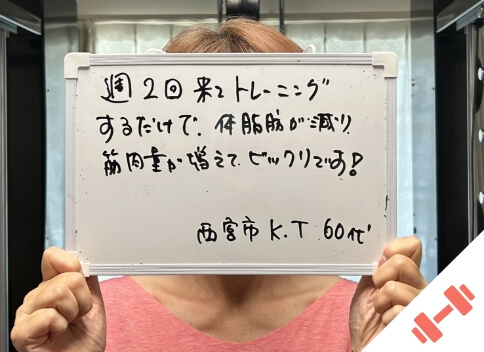 週2回来てトレーニング
するだけで、体脂肪が減り
筋肉量が増えてビックリです!
西宮市 K.T 60代